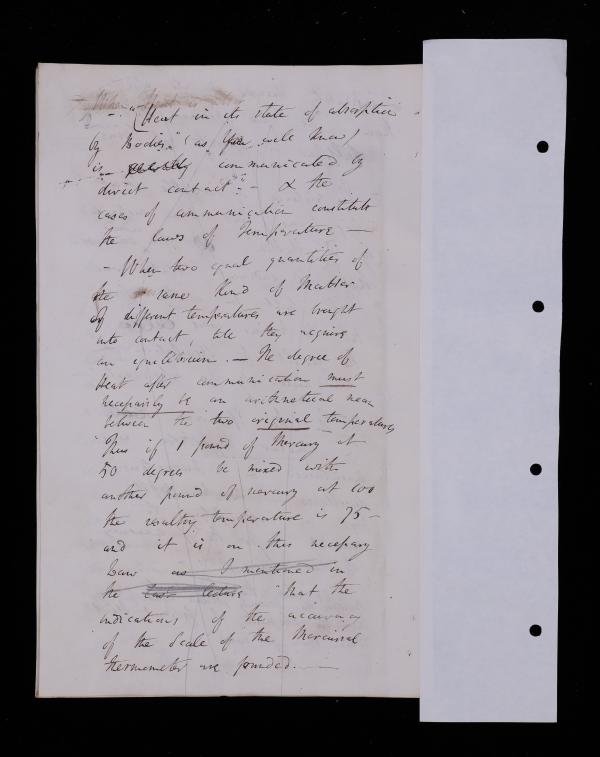 - "Heat in its state of absorption
by Bodies" (as you well know)
is communicated by
direct contact" - & the
cases of communication constitute
the laws of Temperature —
- When two equal quantities of
the same Kind of Matter
of different temperatures are brought
into contact, till they acquire
an equilibrium. — The degree of
Heat after communication must
necessarily be an arithmetical mean
between the two original temperatures
Thus if 1 pound of Mercury at
50 degrees be mixed with
another pound of mercury at 100
the resulting temperature is 75 -
and it is on this necessary
Law as I mentioned in
the last lecture "that the
indications of the accuracy
of the Scale of the Mercurial
thermometer are founded. —